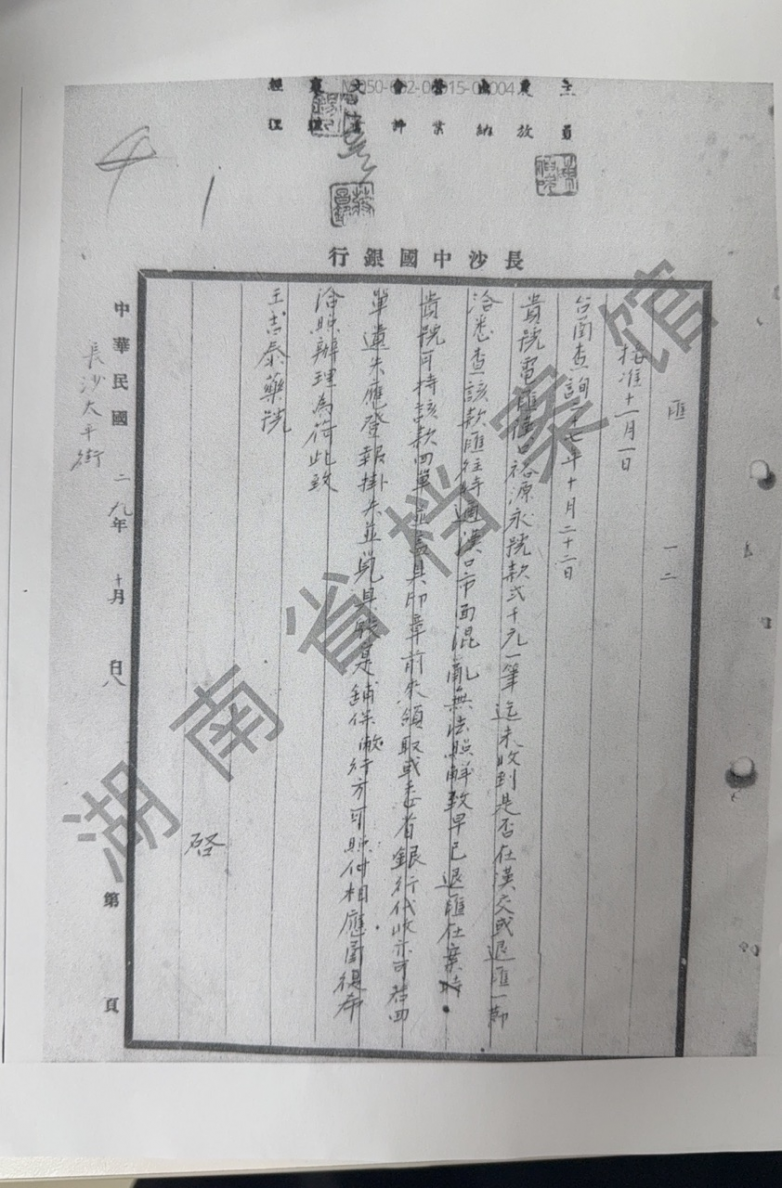 經理
襄理
文書
會計
營業
出納
農放
主員
4
1
長沙中國銀行
匯 一二
接准十一月一日
台函查詢廿七年十月二十二日
貴號電匯漢口裕源永號款弍千元一筆迄未收到是否在漢交或退匯一節
洽悉查該款匯往時適漢口市面混亂無法照解致早已退匯在案時
貴號可持該款回單並蓋具印章前來領取或委省銀行代收亦可若回
單遺失應登報掛失並覓具殷實鋪保敝行方可照付相應函復希
洽照辦理為荷此致
王吉泰藥號
啓
中華民國 二九年 十月 八日 第 頁
長沙太平街
湖南省档案馆